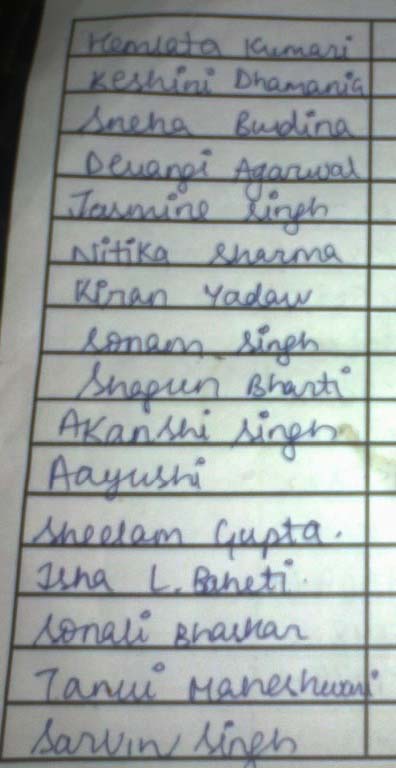 Hemlata Kumari
Keshini Dhamania
Sneha Budina
Devangi Agarwal
Jasmine Singh
Nitika Sharma
Kiran Yadav
Sonam Singh
Shagun Bharti
Akanshi Singh
Aayushi
Sheelam Gupta.
Isha L. Baheti.
Sonali Bhaskar
Tanvi Maheshwari
Sarvin Singh